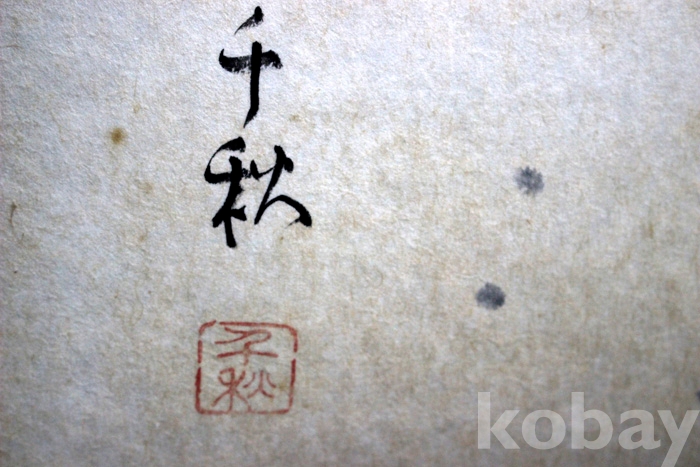 千
秋
千
秋
kobay